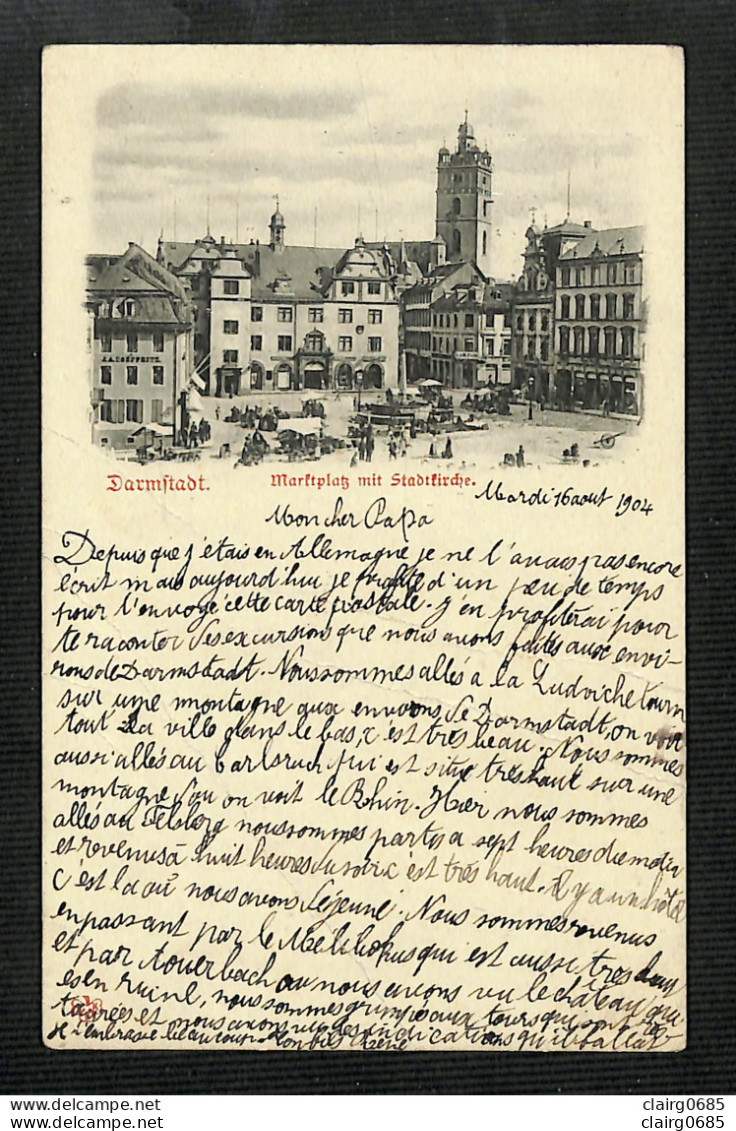 J.A. NOEPFFITZ.
Darmstadt.
Marktplatz mit Stadtkirche.
Mardi 16 aout 1904
Mon cher Papa
Depuis que j'étais en Allemagne je ne l'avais pas encore
écrit mais aujourd'hui je profite d'un peu de temps
pour l'envoyé cette carte postale. J'en profiterai pour
te raconter les excursions que nous avons faites aux envi-
rons de Darmstadt. Nous sommes allés a la Ludvichetourn
sur une montagne aux environs de Darmstadt, on voit
tout la ville dans le bas, c'est très beau. Nous sommes
aussi allés au Carlsruch qui est situé très haut sur une
montagne d'ou on voit le Rhin. Hier nous sommes
allés au Felsberg nous sommes partis a sept heures du matin
et revenus à huit heures du soir c'est très haut. il y a un hôtel
c'est la où nous avons déjeuné. Nous sommes revenus
en passant par le qui est aussi très haut
et par Auerbach ou nous avons vu le château qui
est en ruine, nous sommes grimpés aux tours qui sont
et nous avons vu des indications qu'il fallait
Je t'embrasse beaucoup Ton fils René
clairg0685
clairg0685
delcampe.net
clairg0685